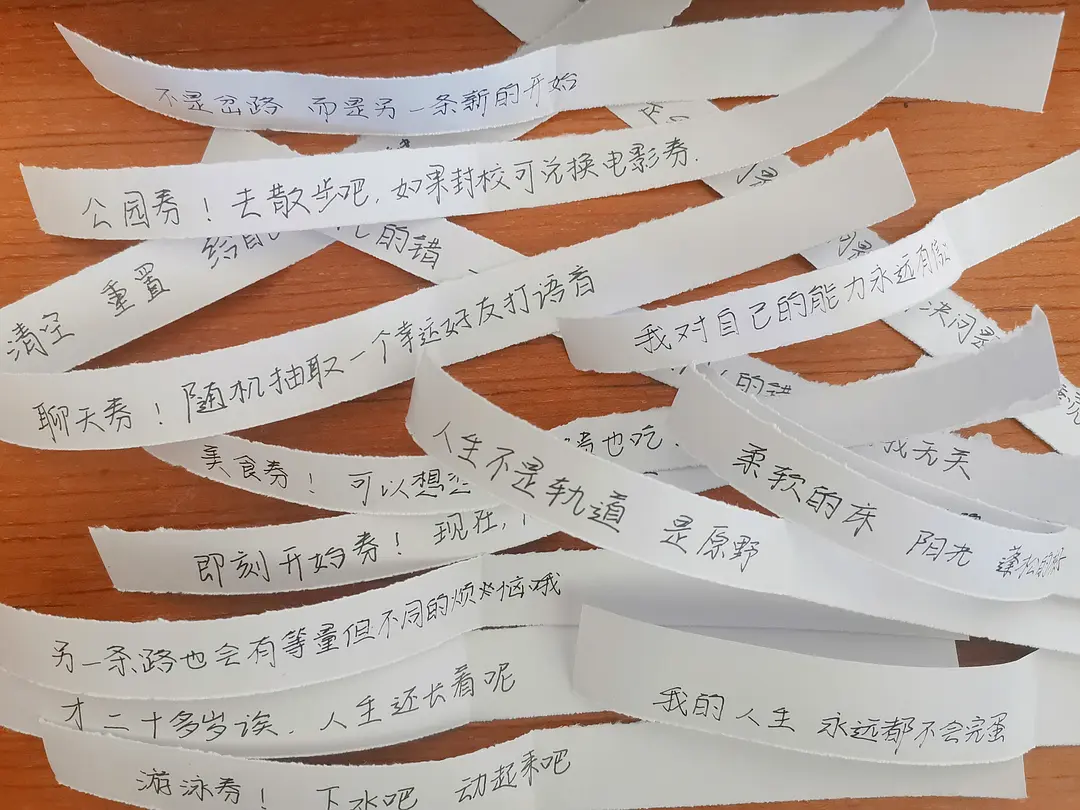 不是岔路 而是另一条新的开始
公园券！去散步吧，如果封校可兑换电影券.
给自
的错
清空 重置
聊天券！随机抽取一个幸运好友打语音
我对自己的能力永远有
决问
的错
美食券！可以想
也吃
我无关
人生不是轨道 是原野
柔软的床 阳光 蓬松的
即刻开始券！现在，
另一条路也会有等量但不同的烦恼哦
才二十多岁诶，人生还长着呢
我的人生 永远都不会完蛋
游泳券！下水吧 动起来吧